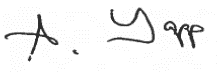 A. Yapp